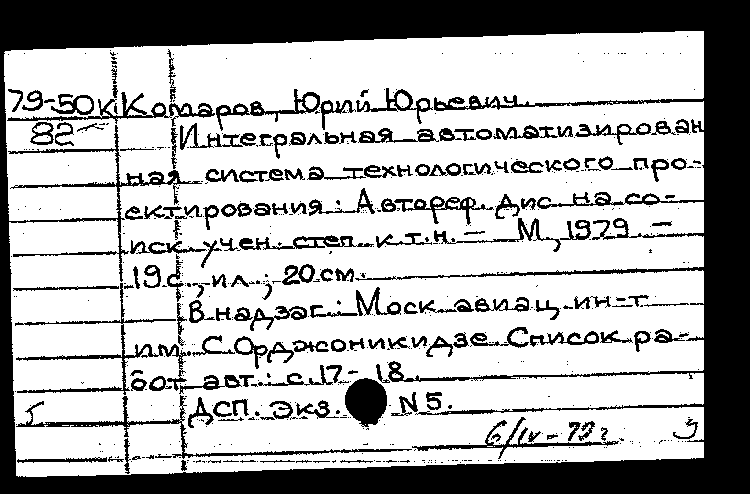 79-50к Комаров, Юрий Юрьевич.
82 Интегральная автоматизирован
ная система технологического про-
ектирования: Автореф. дис. на со-
иск. учен. степ. к.т.н. — М., 1979. —
19 с., ил.; 20 см.
В надзаг.: Моск. авиац. ин-т
им. С. Орджоникидзе. Список ра-
бот авт.: с. 17-18.
ДСП. Экз. N 5.
6/IV-79 г.